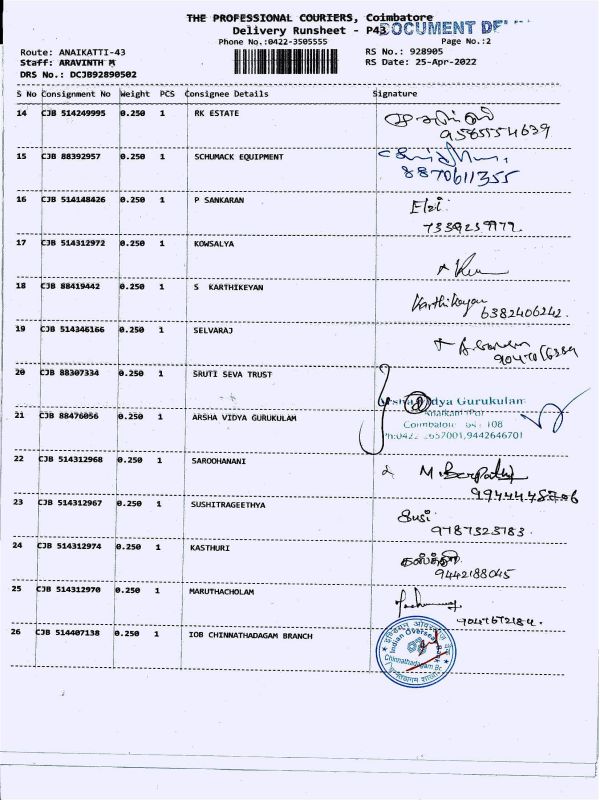 THE PROFESSIONAL COURIERS, Coimbatore
Delivery Runsheet - P43
DOCUMENT DE
Phone No.:0422-3505555
Page No.:2
Route: ANAIKATTI-43
RS No.: 928905
Staff: ARAVINTH M
RS Date: 25-Apr-2022
DRS No.: DCJB92890502
S No Consignment No Weight PCS Consignee Details Signature
14 CJB 514249995 0.250 1 RK ESTATE
9585554639
15 CJB 88392957 0.250 1 SCHUMACK EQUIPMENT
8870611355
16 CJB 514148426 0.250 1 P SANKARAN
7339259972
17 CJB 514312972 0.250 1 KOWSALYA
18 CJB 88419442 0.250 1 S KARTHIKEYAN Karthikeyan
6382406242
19 CJB 514346166 0.250 1 SELVARAJ
20 CJB 88307334 0.250 1 SRUTI SEVA TRUST
Arsha Vidya Gurukulam
21 CJB 88476056 0.250 1 ARSHA VIDYA GURUKULAM
Coimbatore 108
Ph:0422 2657001,9442646701
22 CJB 514312968 0.250 1 SAROOHANANI
23 CJB 514312967 0.250 1 SUSHITRAGEETHYA Susi
9787323783
24 CJB 514312974 0.250 1 KASTHURI கஸ்தூரி
9442188045
25 CJB 514312970 0.250 1 MARUTHACHOLAM
9047672184
26 CJB 514407138 0.250 1 IOB CHINNATHADAGAM BRANCH
Indian Overseas Bank
Chinnathadagam Br.